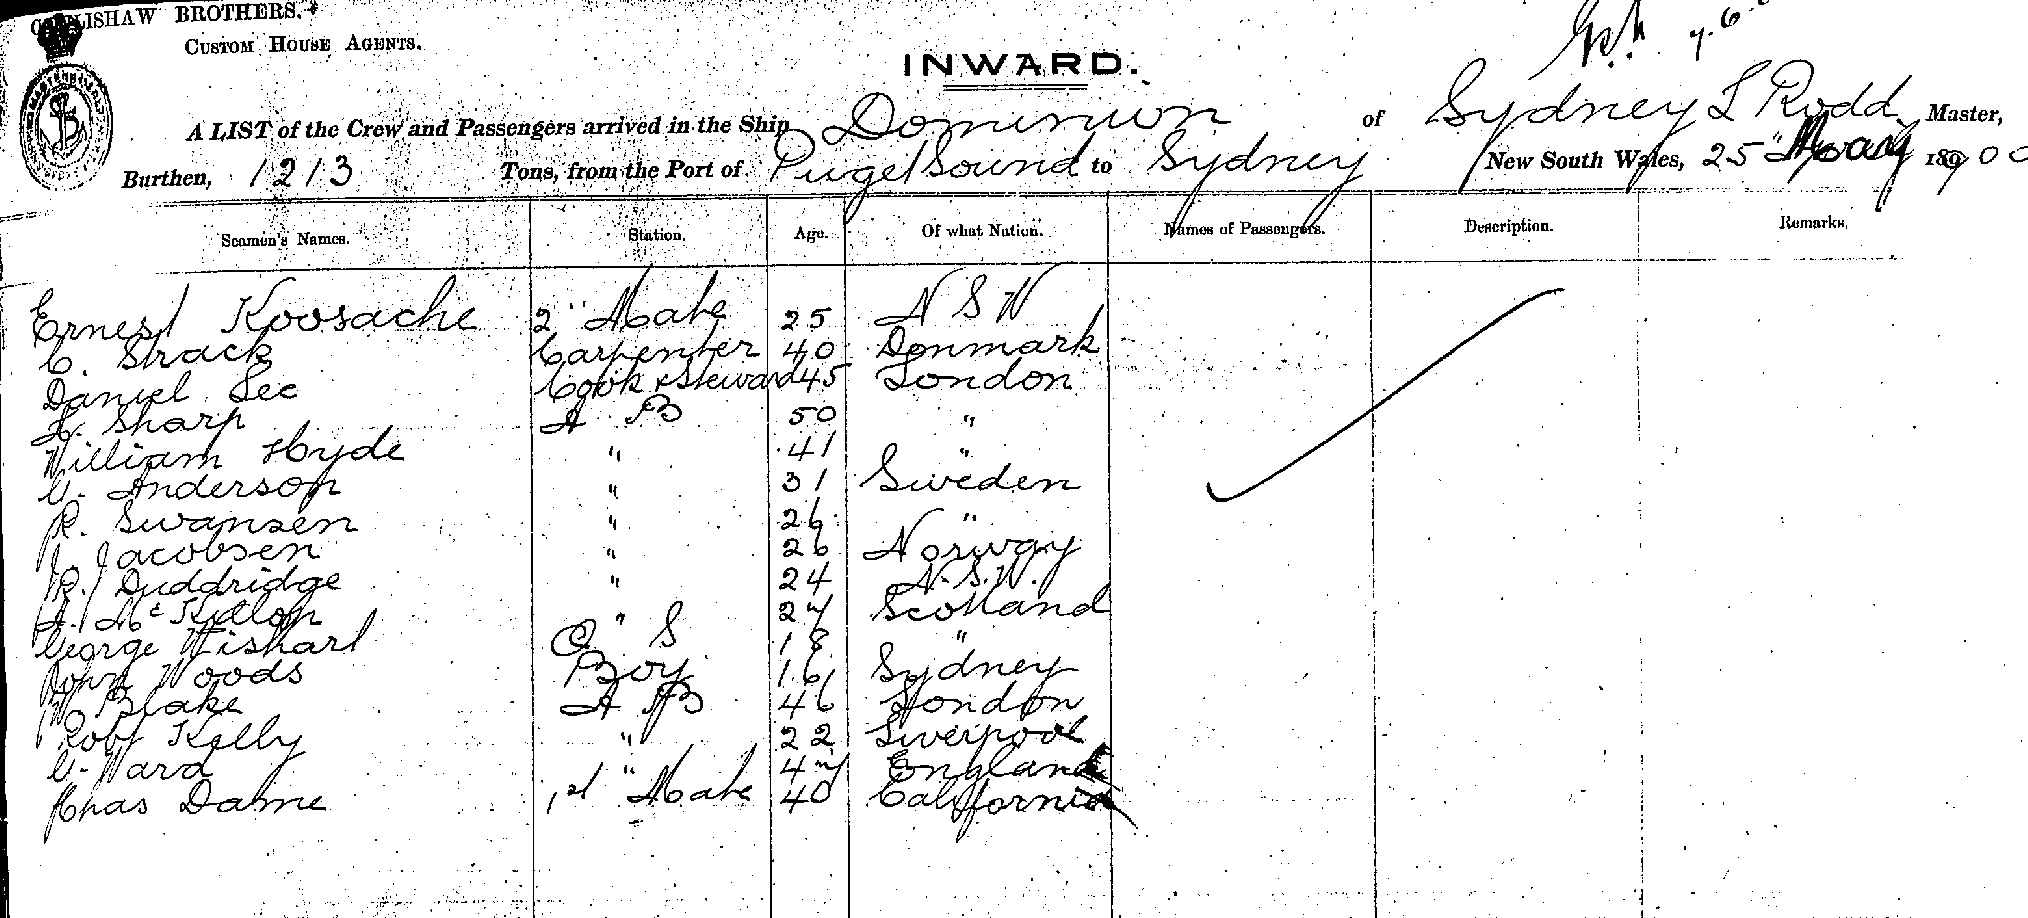 BROTHERS.
CUSTOM HOUSE AGENTS.
INWARD.
A LIST of the Crew and Passengers arrived in the Ship Dominion of Sydney L Rodd Master,
Burthen, 1213 Tons, from the Port of Puget Sound to Sydney New South Wales, 25" May 1900
Seamen's Names. Station. Age. Of what Nation. Names of Passengers. Description. Remarks.
Ernest Koosache 2" Mate 25 N S W
C. Strack Carpenter 40 Denmark
Daniel Lee Cook & Steward 45 London
Sharp A B 50 "
William Hyde " 41 "
Anderson " 31 Sweden
R. Swansen " 26 "
J. Jacobsen " 26 Norway
R. Duddridge " 24 N.S.W.
A. McKillop " 27 Scotland
George Wishart O S 18 "
John Woods Boy 16 Sydney
W Blake A B 46 London
Robt Kelly " 22 Liverpool
Ward " 47 England
Chas Dame 1st Mate 40 California